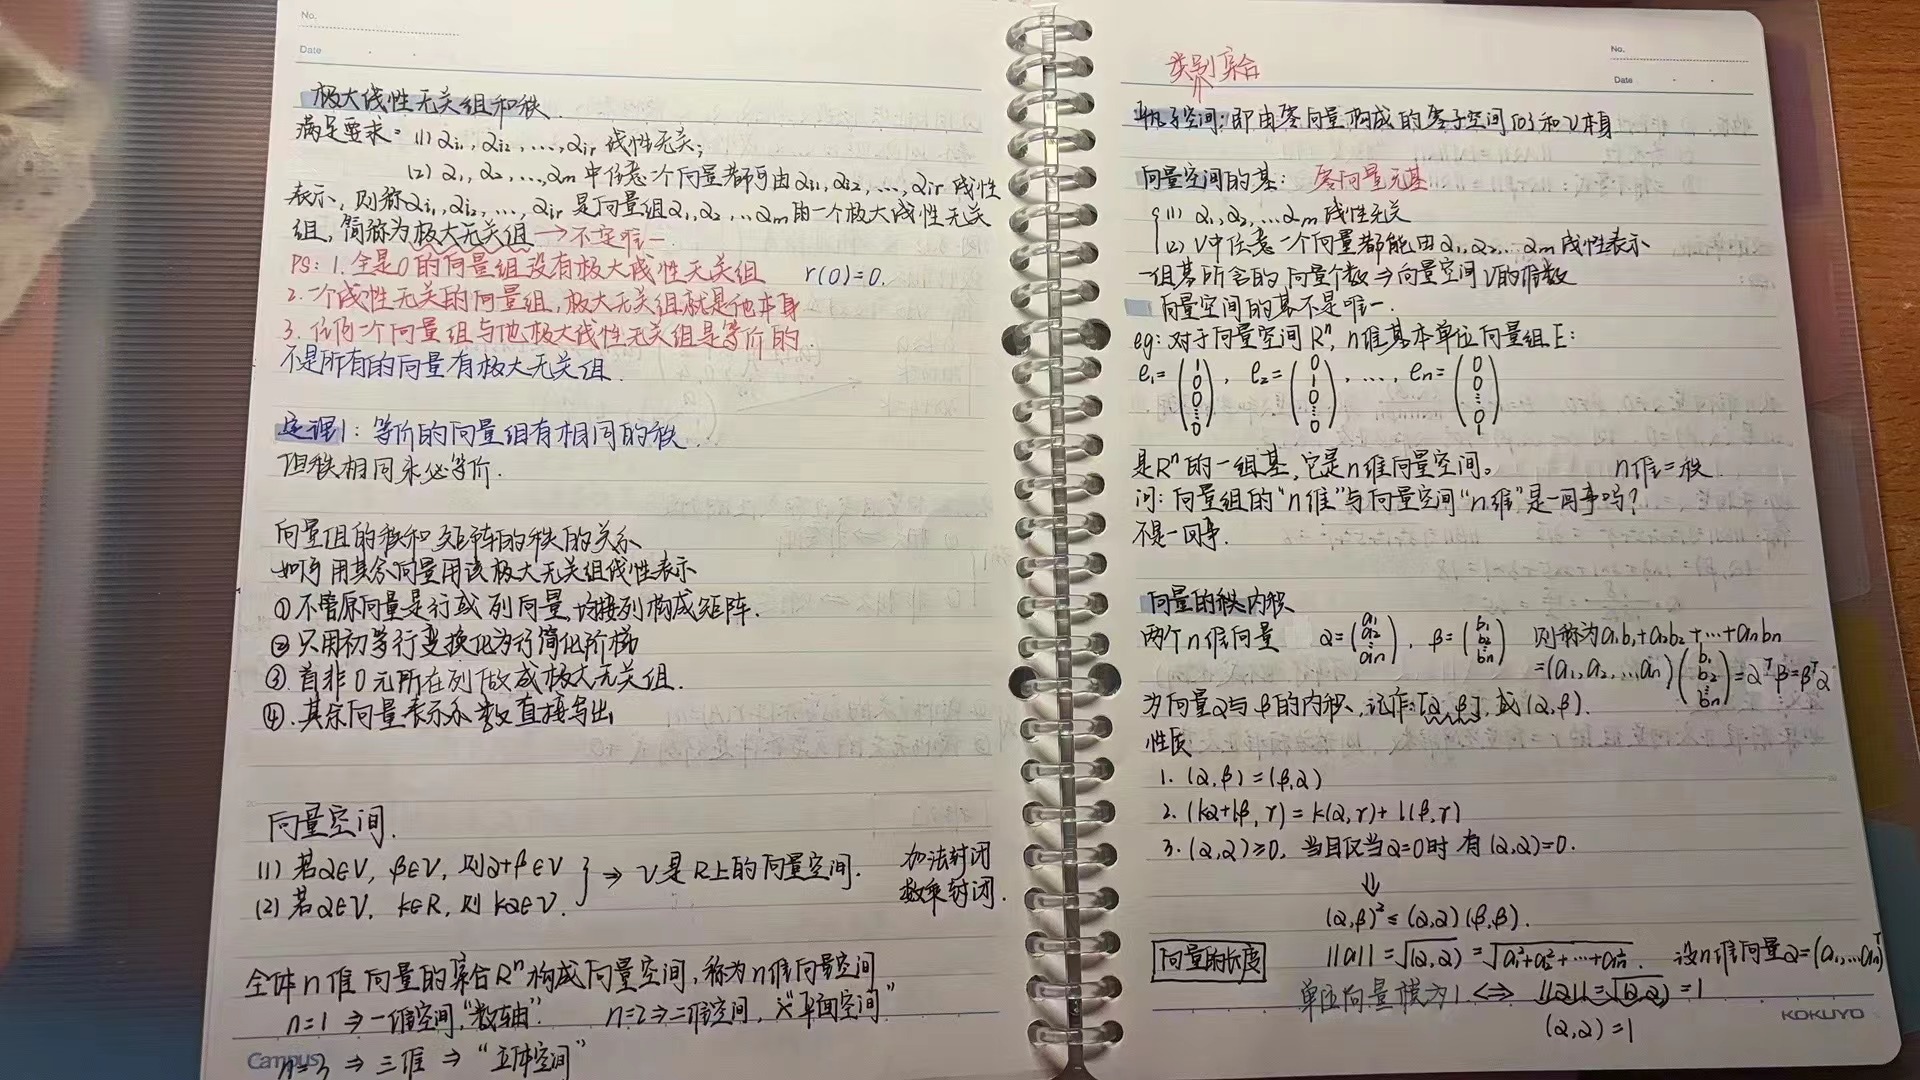 No.
Date
极大线性无关组和秩.
满足要求: (1) αi₁, αi₂, ..., αir 线性无关;
(2) α₁, α₂, ..., αm 中任意一个向量都可由αi₁, αi₂, ..., αir 线性
表示, 则称αi₁, αi₂, ..., αir 是向量组α₁, α₂, ...αm的一个极大线性无关
组, 简称为极大无关组 → 不是唯一.
PS: 1. 全是0的向量组没有极大线性无关组 r(0)=0.
2. 一个线性无关的向量组, 极大无关组就是他本身
3. 任何一个向量组与他极大线性无关组是等价的.
不是所有的向量有极大无关组.
定理1: 等价的向量组有相同的秩.
但秩相同未必等价.
向量组的秩和矩阵的秩的关系
如何用其余向量用该极大无关组线性表示
① 不管原向量是行或列向量, 均按列构成矩阵.
② 只用初等行变换化为行简化阶梯
③. 首非0元所在列做成极大无关组.
④. 其余向量表示系数直接写出
向量空间.
(1) 若α∈V, β∈V, 则α+β∈V } ⇒ V是R上的向量空间. 加法封闭
(2) 若α∈V, k∈R, 则kα∈V. 数乘封闭.
全体n维向量的集合Rⁿ构成向量空间, 称为n维向量空间
n=1 ⇒ 一维空间, "数轴". n=2 ⇒ 二维空间, "平面空间"
n=3 ⇒ 三维 ⇒ "立体空间"
Campus
No.
Date
类别集合
平凡子空间: 即由零向量构成的零子空间{0}和V本身
向量空间的基: 零向量无基
{ (1) α₁, α₂, ...αm 线性无关
(2) V中任意一个向量都能由α₁, α₂, ...αm 线性表示
一组基所含的向量个数 ⇒ 向量空间V的维数
向量空间的基不是唯一.
eg: 对于向量空间Rⁿ, n维基本单位向量组E:
e₁=(1 0 0 ⋮ 0), e₂=(0 1 0 ⋮ 0), ..., en=(0 0 ⋮ 0 1)
是Rⁿ的一组基, 它是n维向量空间. n维=秩.
问: 向量组的"n维"与向量空间"n维"是一回事吗?
不是一回事.
向量的内积
两个n维向量 α=(a₁ a₂ ⋮ an), β=(b₁ b₂ ⋮ bn) 则称为a₁b₁+a₂b₂+⋯+anbn
=(a₁, a₂, ...an)(b₁ b₂ ⋮ bn)=αᵀβ=βᵀα
为向量α与β的内积, 记作: [α, β], 或(α, β).
性质
1. (α, β)=(β, α)
2. (kα+lβ, γ)=k(α, γ)+l(β, γ)
3. (α, α)≥0, 当且仅当α=0时 有(α, α)=0.
⇓
(α, β)²≤(α, α)(β, β).
向量的长度 ||α||=√(α, α)=√a₁²+a₂²+⋯+an². 设n维向量α=(a₁, ...an)ᵀ
单位向量模为1. ⇔ ||α||=√(α, α)=1
(α, α)=1
KOKUYO